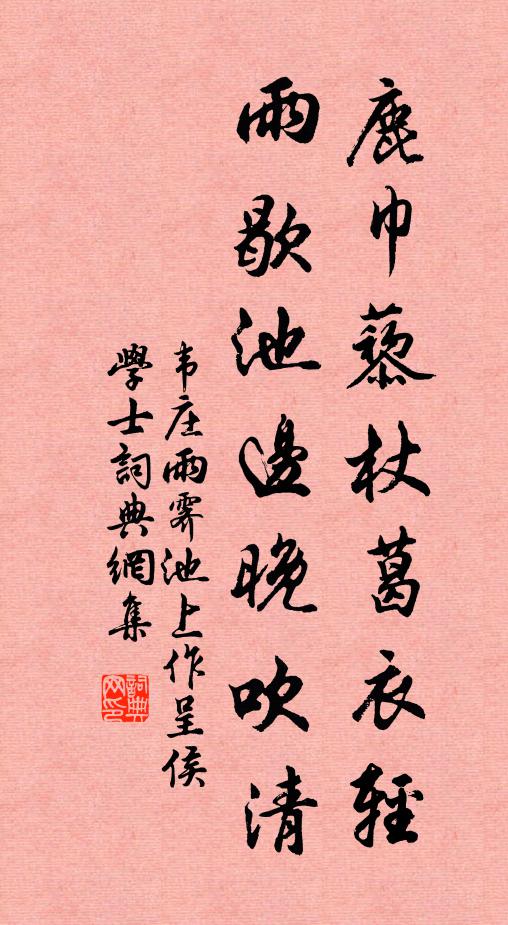 鹿巾藜杖葛衣輕
雨歇池邊晚吹清
韦庄雨霽池上作呈侯
學士詞典網集
詞典网印